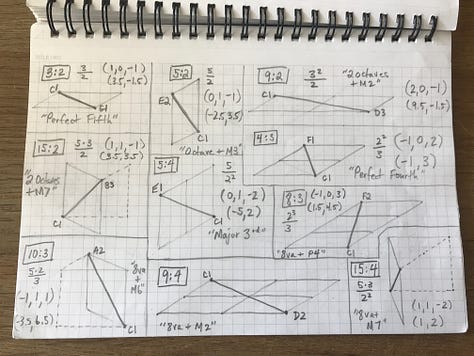 3:2
3/2
(1,0,-1)
(3.5,-1.5)
C1
G1
"Perfect Fifth"
5:2
5/2
(0,1,-1)
(-2.5,3.5)
E2
C1
"Octave + M3"
9:2
3²/2
"2 Octaves
+ M2"
(2,0,-1)
(9.5,-1.5)
C1
D3
15:2
5·3/2
(1,1,-1)
(3.5,3.5)
"2 Octaves
+ M7"
B3
C1
5:4
5/2²
E1
(0,1,-2)
(-5,2)
C1
"Major 3rd"
4:3
F1
2²/3
(-1,0,2)
(-1,3)
C1
"Perfect Fourth"
8:3
(-1,0,3)
(1.5,4.5)
2³/3
F2
C1
"8va + P4"
10:3
5·2/3
A2
(-1,1,1)
"8va
+
M6"
C1
9:4
C1
D2
"8va + M2"
15:4
5·3/2²
"8va+
M7"
(1,1,-2)
(1,2)